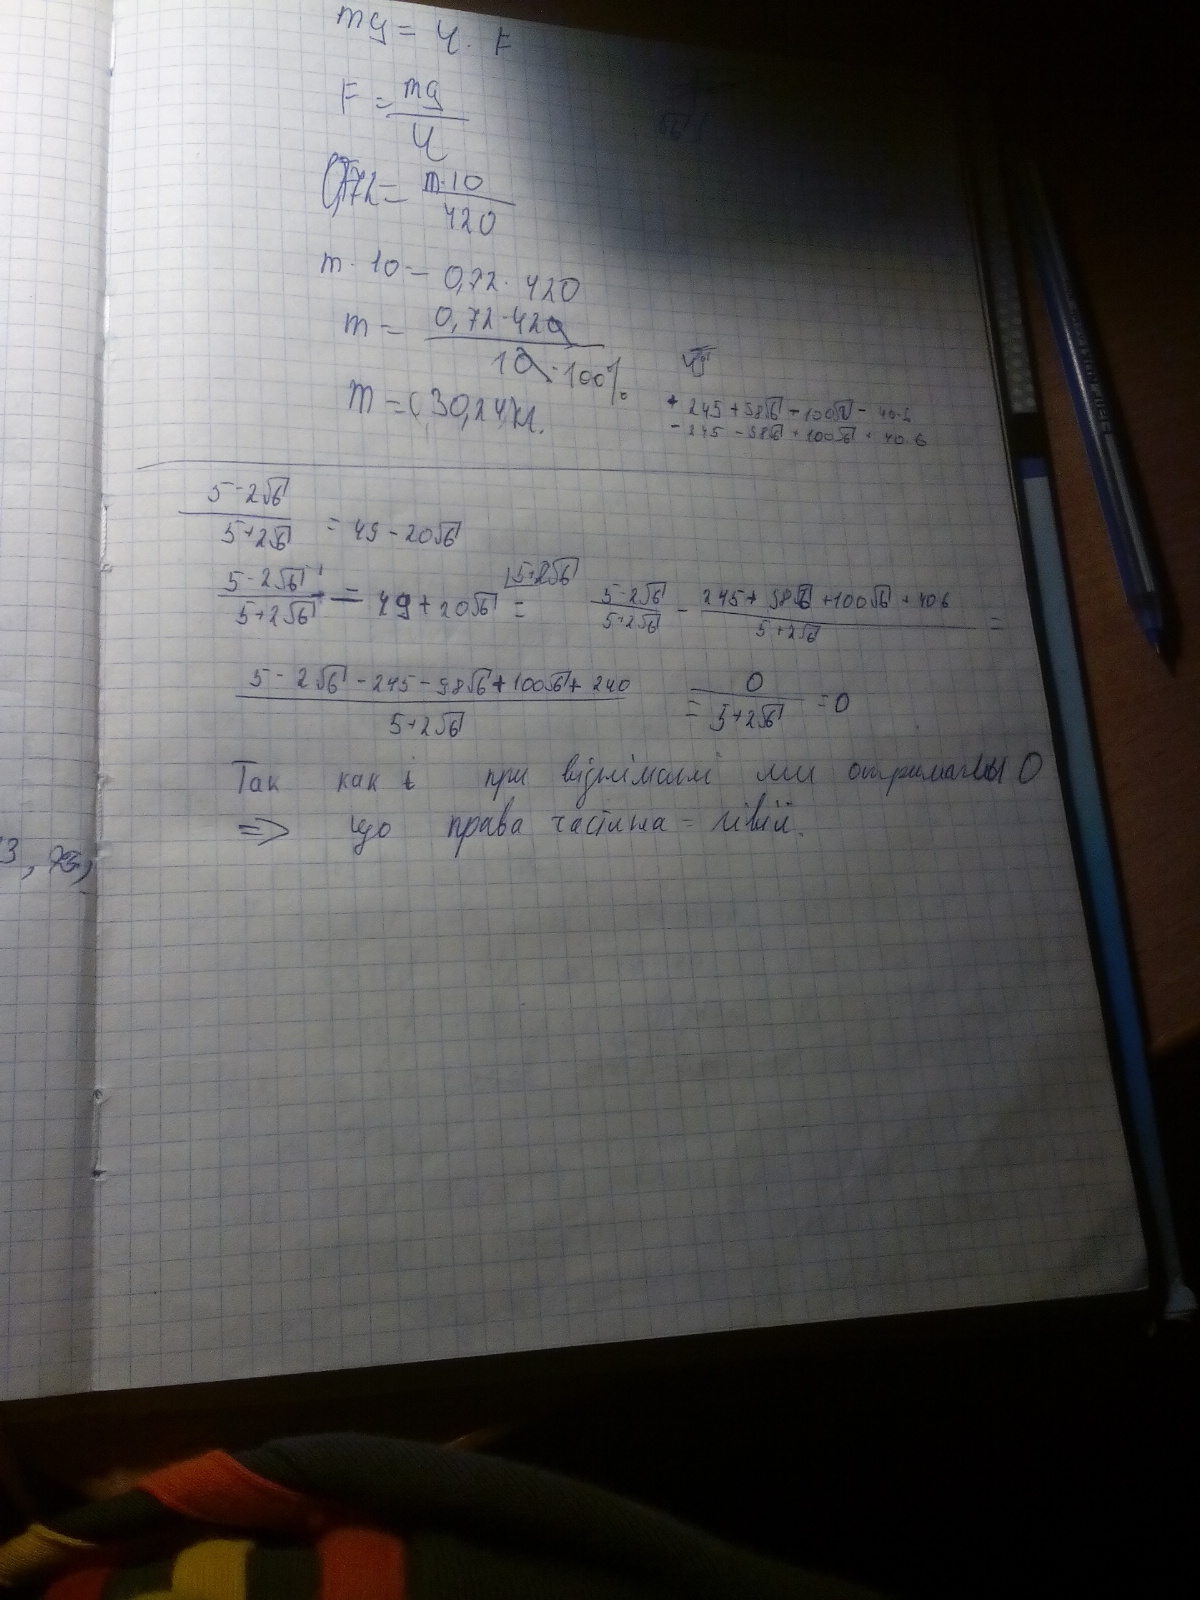 mg = 4 · F
F = mg / 4
0,72 = m·10 / 420
m · 10 = 0,72 · 420
m = 0,72·420 / 10 · 100%
m = (30,24) кг.
+ 245 + 98√6 - 100√6 - 40·6
- 245 - 98√6 + 100√6 + 40·6
5-2√6 / 5+2√6 = 49 - 20√6
5-2√6 / 5+2√6 - 49 + 20√6 = 5-2√6 / 5+2√6 - 245 + 98√6 + 100√6 + 40·6 / 5+2√6 =
5 - 2√6 - 245 - 98√6 + 100√6 + 240 / 5+2√6 = 0 / 5+2√6 = 0
Так как і при відніманні ми отримали 0
=> що права частина = лівій.